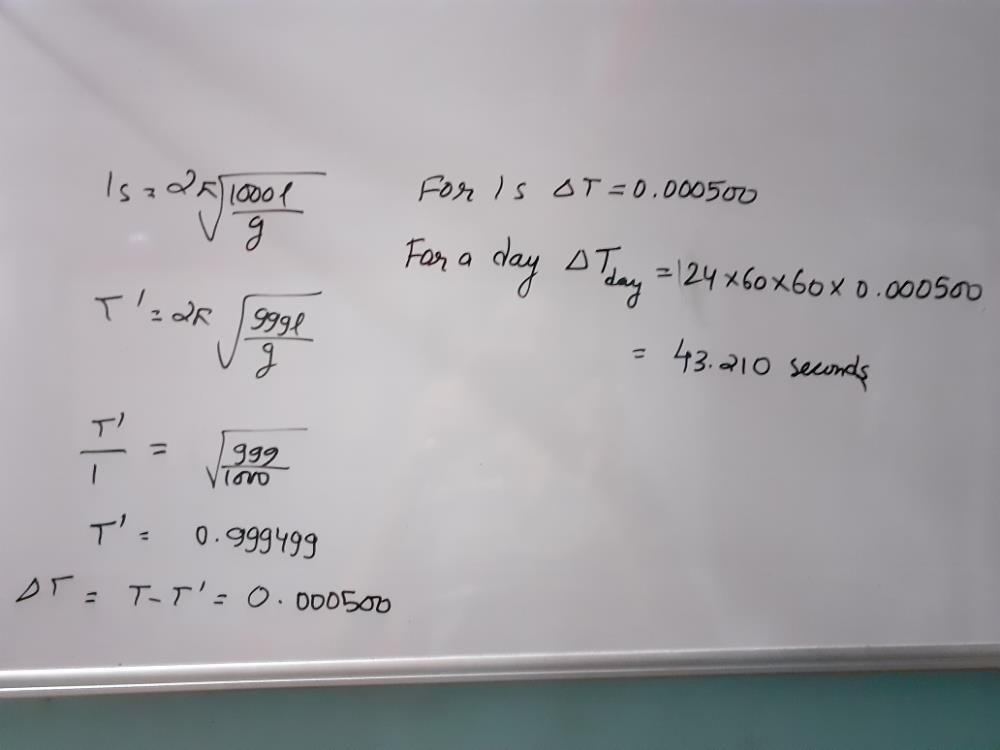 1s = 2π√(1000l/g)
T' = 2π√(999l/g)
T'/1 = √(999/1000)
T' = 0.999499
ΔT = T - T' = 0.000500
For 1s ΔT = 0.000500
For a day ΔT_day = 24×60×60× 0.000500
= 43.210 seconds